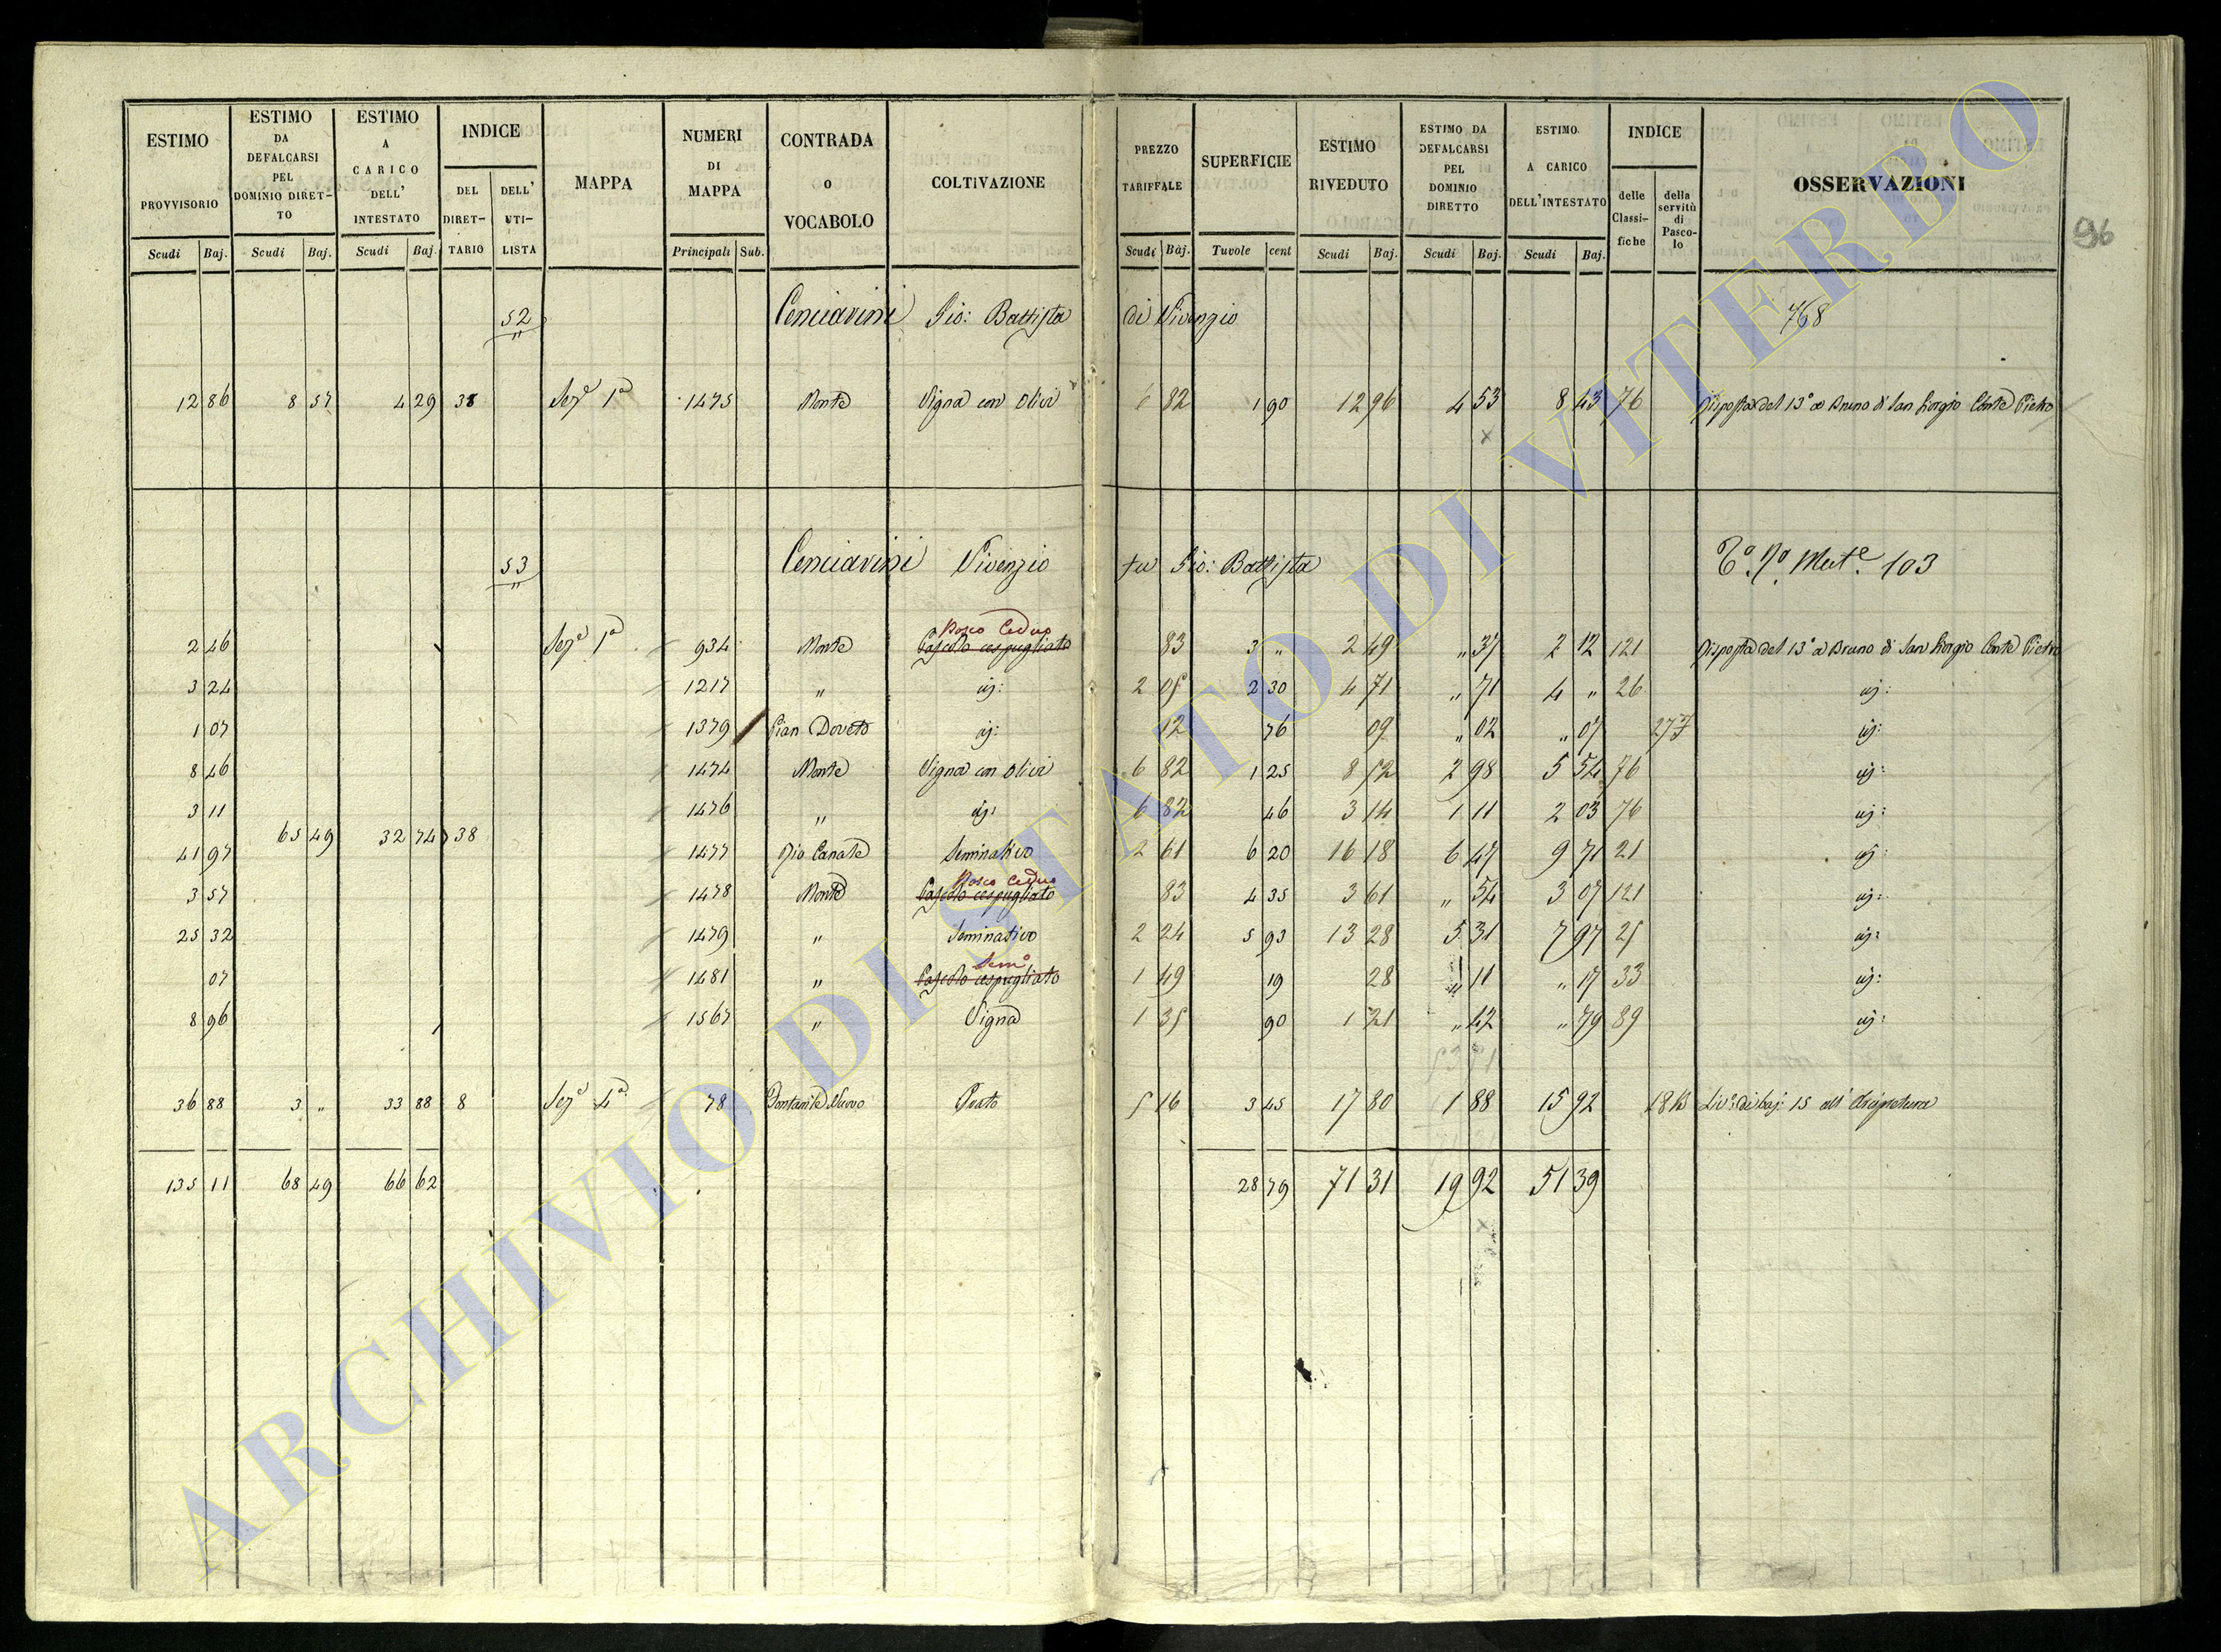 ESTIMO PROVVISORIO Scudi Baj. ESTIMO DA DEFALCARSI PEL DOMINIO DIRETTO Scudi Baj. ESTIMO A CARICO DELL' INTESTATO Scudi Baj. INDICE DEL DIRETTARIO DELL' UTILISTA MAPPA NUMERI DI MAPPA Principali Sub. CONTRADA o VOCABOLO COLTIVAZIONE PREZZO TARIFFALE Scudi Baj. SUPERFICIE Tavole cent ESTIMO RIVEDUTO Scudi Baj. ESTIMO DA DEFALCARSI PEL DOMINIO DIRETTO Scudi Baj. ESTIMO A CARICO DELL'INTESTATO Scudi Baj. INDICE delle Classifiche della servitù di Pascolo OSSERVAZIONI
96
52 Cenciarini Gio: Battista di Vivenzio 768
12 86 8 57 4 29 38 Sez.e 1a 1475 Monte Vigna con olivi 6 82 1 90 12 96 4 53 8 43 76 Disposta del 13° a Bruno di San Giorgio Conte Pietro
53 Cenciarini Vivenzio fu Gio: Battista 103
Bosco Ceduo
2 46 Sez.e 1a 934 Monte Pascolo cespugliato 83 3 " 2 49 " 37 2 12 121 Disposta del 13° a Bruno di San Giorgio Conte Pietro
3 24 1217 " id: 2 05 2 30 4 71 " 71 4 " 26 id:
1 07 1379 Pian Doveto id: 12 76 09 " 02 " 07 27 id:
8 46 1474 Monte Vigna con olivi 6 82 1 25 8 52 2 98 5 54 76 id:
3 11 1476 " id: 6 82 46 3 14 1 11 2 03 76 id:
65 49 32 74 38
41 97 1477 Rio Canale Seminativo 2 61 6 20 16 18 6 47 9 71 21 id:
Bosco Ceduo
3 57 1478 Monte Pascolo cespugliato 83 4 35 3 61 " 54 3 07 121 id:
25 32 1479 " Seminativo 2 24 5 93 13 28 5 31 7 97 25 id:
Sem.o
07 1481 " Pascolo cespugliato 1 49 19 28 " 11 " 17 33 id:
8 96 1567 " Vigna 1 35 90 1 21 " 42 " 79 89 id:
36 88 3 " 33 88 8 Sez.e 4a 78 Fontanile Nuovo Prato 5 16 3 45 17 80 1 88 15 92 18 Liv.o di baj: 15 all'
135 11 68 49 66 62 28 79 71 31 19 92 51 39
ARCHIVIO DI STATO DI VITERBO